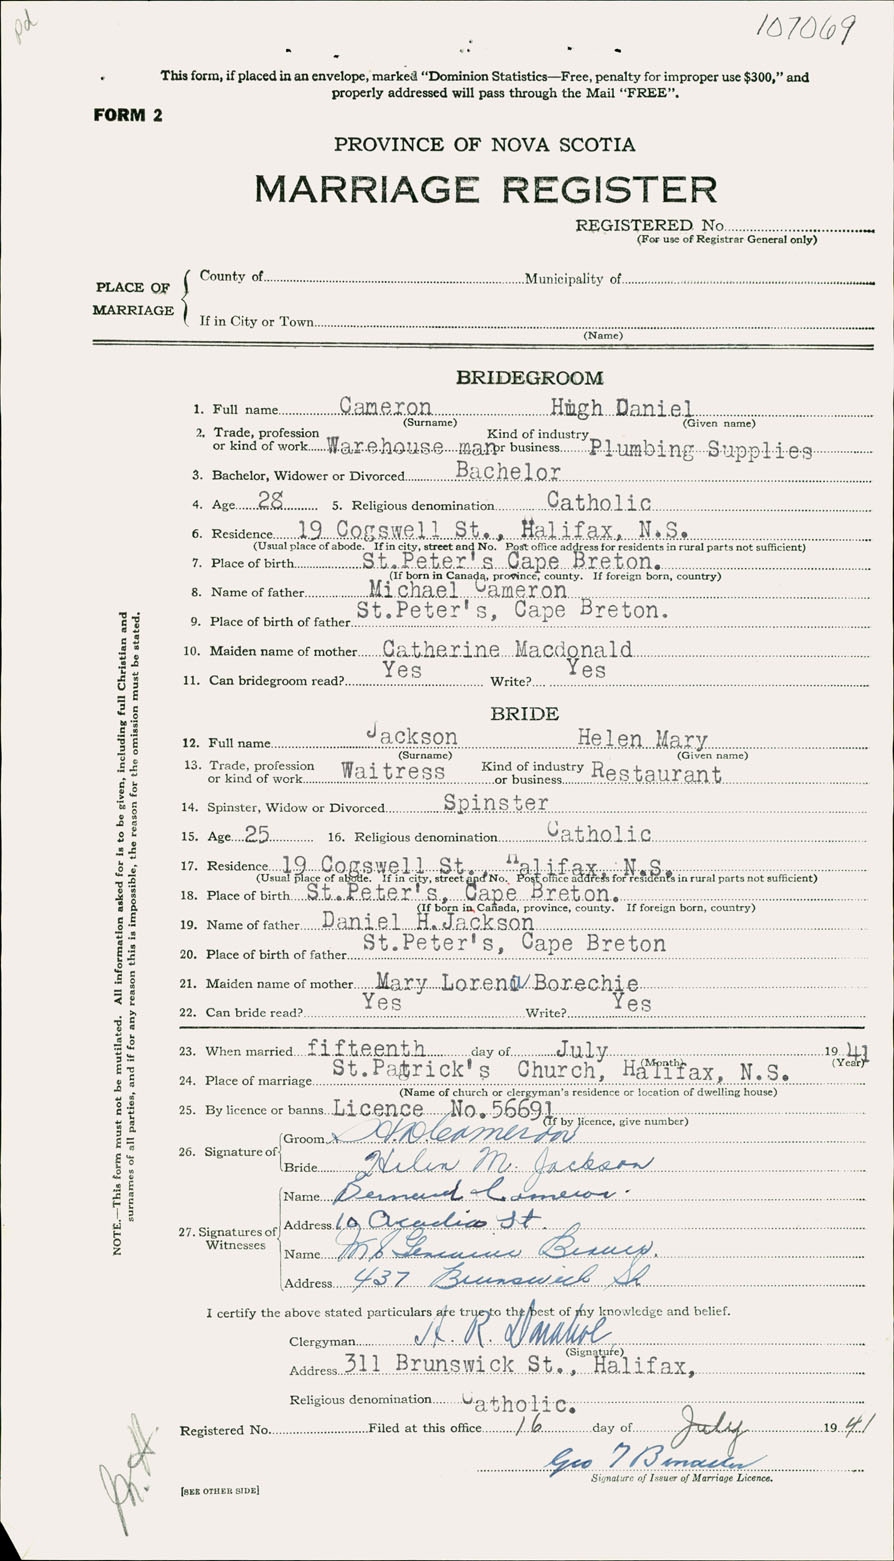 pd
107069
This form, if placed in an envelope, marked "Dominion Statistics—Free, penalty for improper use $300," and
properly addressed will pass through the Mail "FREE".
FORM 2
PROVINCE OF NOVA SCOTIA
MARRIAGE REGISTER
REGISTERED No.
(For use of Registrar General only)
PLACE OF MARRIAGE
County of Municipality of
If in City or Town
(Name)
BRIDEGROOM
1. Full name Cameron Hugh Daniel
(Surname) (Given name)
2. Trade, profession or kind of work Warehouse man Kind of industry or business Plumbing Supplies
3. Bachelor, Widower or Divorced Bachelor
4. Age 28 5. Religious denomination Catholic
6. Residence 19 Cogswell St., Halifax, N.S.
(Usual place of abode. If in city, street and No. Post office address for residents in rural parts not sufficient)
7. Place of birth St.Peter's Cape Breton.
(If born in Canada, province, county. If foreign born, country)
8. Name of father Michael Cameron
9. Place of birth of father St.Peter's, Cape Breton.
10. Maiden name of mother Catherine Macdonald
11. Can bridegroom read? Yes Write? Yes
BRIDE
12. Full name Jackson Helen Mary
(Surname) (Given name)
13. Trade, profession or kind of work Waitress Kind of industry or business Restaurant
14. Spinster, Widow or Divorced Spinster
15. Age 25 16. Religious denomination Catholic
17. Residence 19 Cogswell St., Halifax, N.S.
(Usual place of abode. If in city, street and No. Post office address for residents in rural parts not sufficient)
18. Place of birth St.Peter's, Cape Breton.
(If born in Canada, province, county. If foreign born, country)
19. Name of father Daniel H.Jackson
20. Place of birth of father St.Peter's, Cape Breton
21. Maiden name of mother Mary Lorena Borechie
22. Can bride read? Yes Write? Yes
23. When married fifteenth day of July 1941
(Month) (Year)
24. Place of marriage St.Patrick's Church, Halifax, N.S.
(Name of church or clergyman's residence or location of dwelling house)
25. By licence or banns Licence No.56691
(If by licence, give number)
26. Signature of
Groom x H D Cameron
Bride Helen M. Jackson
27. Signatures of Witnesses
Name Bernard Cameron.
Address 10 Acadia St.
Name
Address 437 Brunswick St
I certify the above stated particulars are true to the best of my knowledge and belief.
Clergyman H. R. Donahoe
(Signature)
Address 311 Brunswick St., Halifax,
Religious denomination Catholic.
Registered No. Filed at this office 16 day of July 1941
Geo T
Signature of Issuer of Marriage Licence.
[SEE OTHER SIDE]
NOTE.—This form must not be mutilated. All information asked for is to be given, including full Christian and
surnames of all parties, and if for any reason this is impossible, the reason for the omission must be stated.